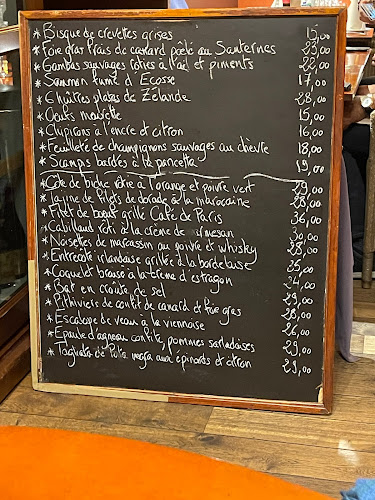 * Bisque de crevettes grises 15,00
* Foie gras frais de canard poêlé au Sauternes 23,00
* Gambas sauvages rôties à l'ail et piments 22,00
* Saumon fumé d'Ecosse 17,00
* 6 huîtres plates de Zélande 28,00
* Oeufs mouette 15,00
* Chipirons à l'encre et citron 16,00
* Feuilleté de champignons sauvages au chèvre 18,00
* Scampis bardés à la pancetta 19,00
* Côte de biche rôtie à l'orange et poivre vert 29,00
* Tagine de filets de dorade à la marocaine 28,00
* Filet de boeuf grillé Café de Paris 36,00
* Cabillaud rôti à la crème de parmesan 30,00
* Noisettes de marcassin au poivre et whisky 28,00
* Entrecôte irlandaise grillée à la bordelaise 35,00
* Coquelet braisé à la crème d'estragon 24,00
* Bar en croûte de sel 29,00
* Pithiviers de confit de canard et foie gras 28,00
* Escalope de veau à la viennoise 26,00
* Epaule d'agneau confite, pommes sarladaises 29,00
* Tagliata de Pata negra aux épinards et citron 29,00